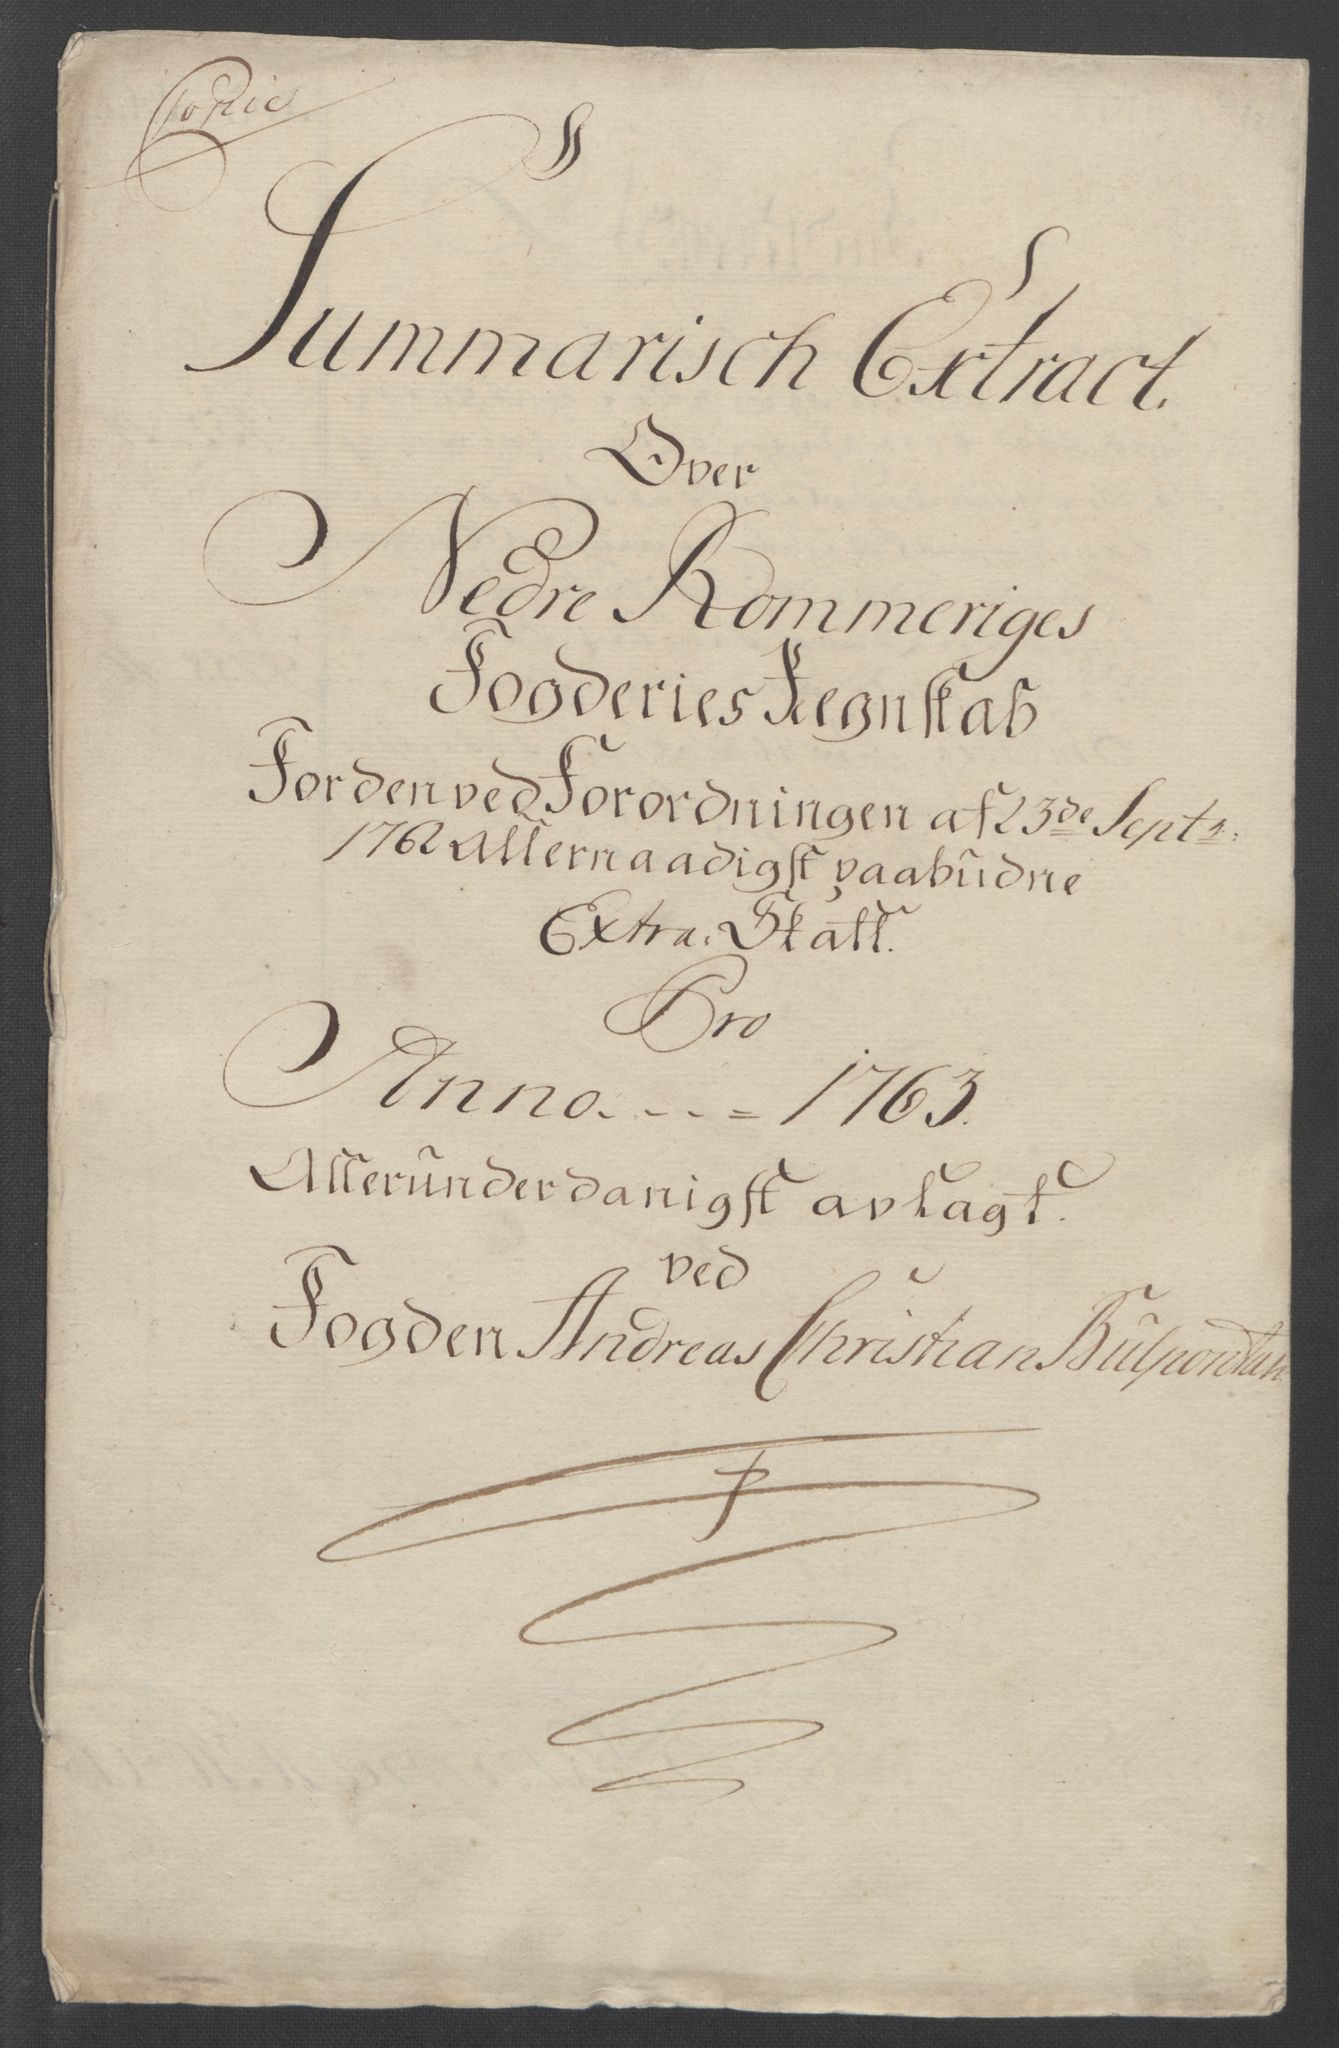 Copie
Summarisch Extract.
Over
Nedre Rommeriges
Fogderies Regnskab
For den ved Forordningen af 23de Septr:
1762 Allernaadigst paabudne
Extra Skatt.
Pro
Anno - - - = 1763.
Allerunderdanigst avlagt.
ved
Fogden Andreas Christian